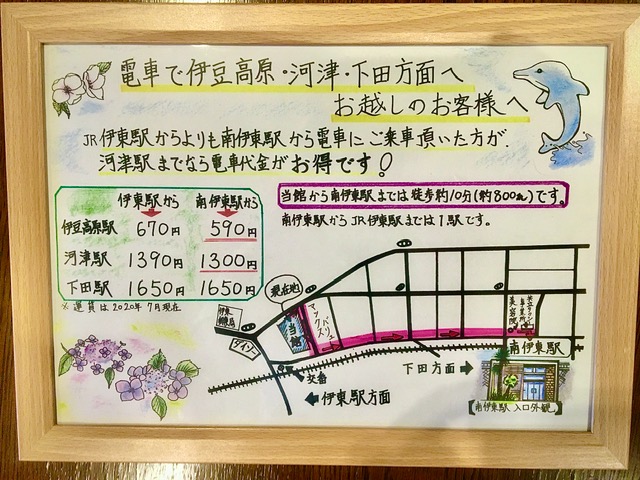 電車で伊豆高原・河津・下田方面へ
お越しのお客様へ
JR伊東駅からよりも南伊東駅から電車にご乗車頂いた方が、
河津駅までなら電車代金がお得です！
伊東駅から 南伊東駅から
伊豆高原駅 670円 590円
河津駅 1390円 1300円
下田駅 1650円 1650円
※ 運賃は2020年7月現在
当館から南伊東駅までは徒歩約10分(約800m)です。
南伊東駅からJR伊東駅までは1駅です。
現在地
当館
マックスバリュ
ダイソー
交番
南伊東駅
下田方面
伊東駅方面
【南伊東駅 入口外観】